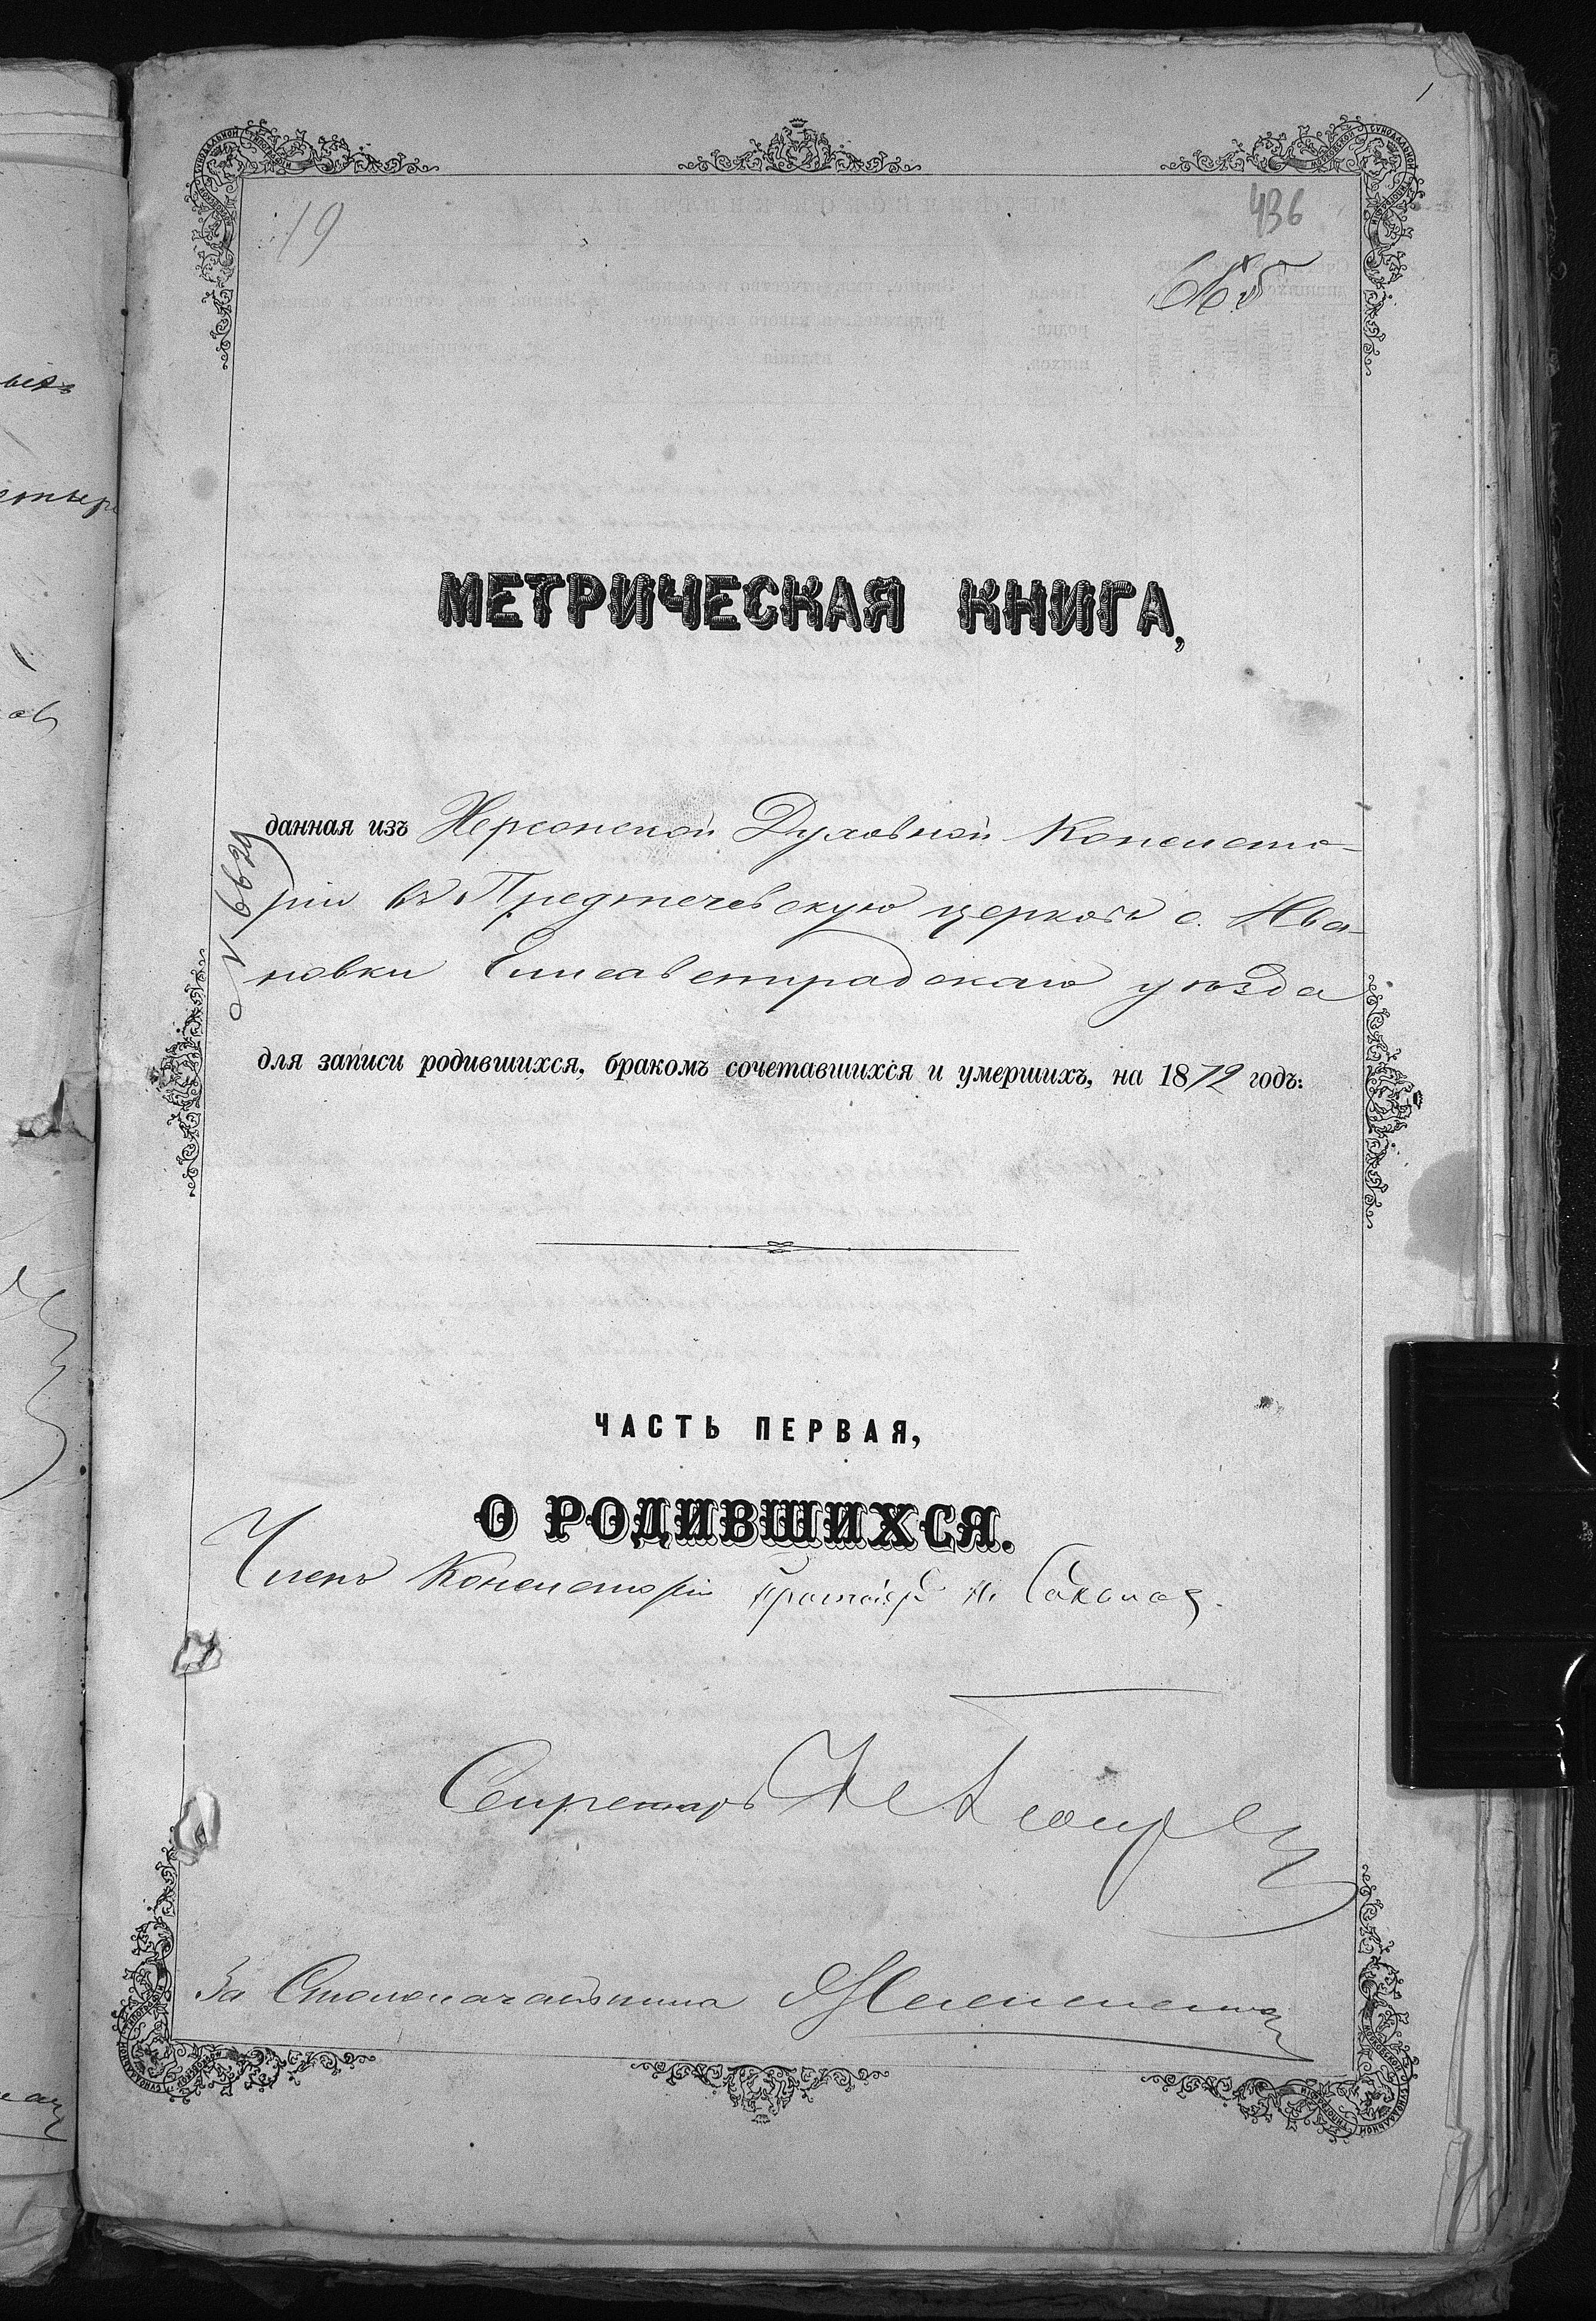 1
19
436
МЕТРИЧЕСКАЯ КНИГА,
данная изъ Херсонской Духовной Консисто-
ріи въ Предтечевскую церковь с. Ива-
новки Елисаветградскаго уѣзда
для записи родившихся, бракомъ сочетавшихся и умершихъ, на 1872 годъ:
ЧАСТЬ ПЕРВАЯ,
О РОДИВШИХСЯ.
Членъ Консисторіи Н.
Секретарь
За Столоначальника